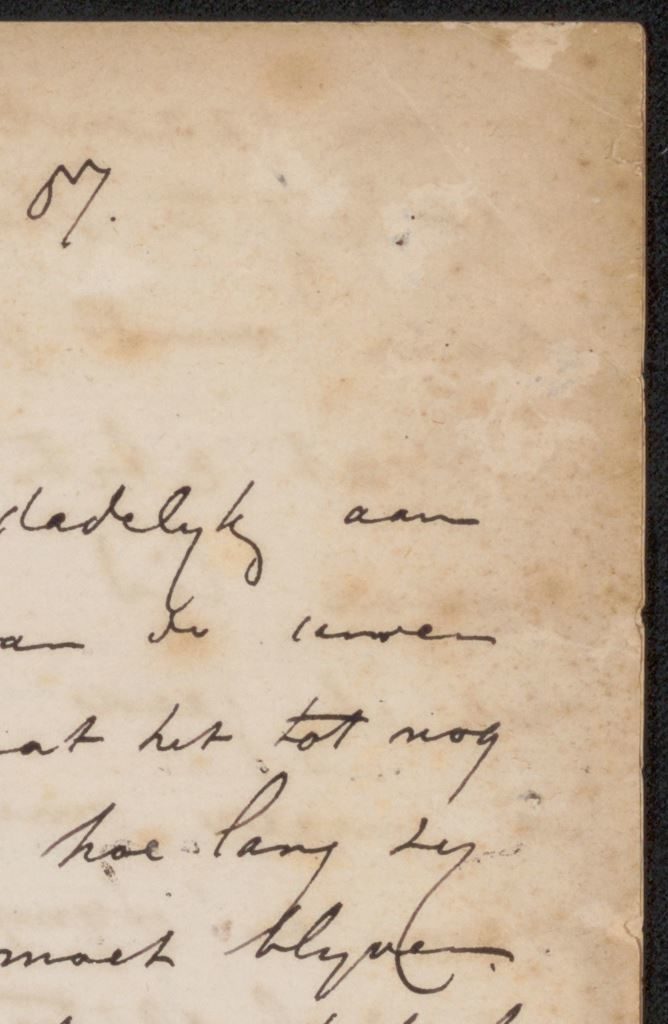 87.
dadelyk aan
an de uwen
at het tot nog
hoe lang zy
moet blyven.